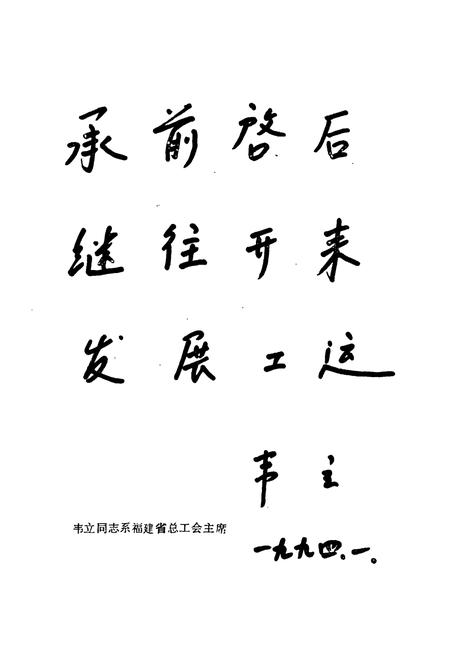 承前启后
继往开来
发展工运
韦立
韦立同志系福建省总工会主席
一九九四.一。